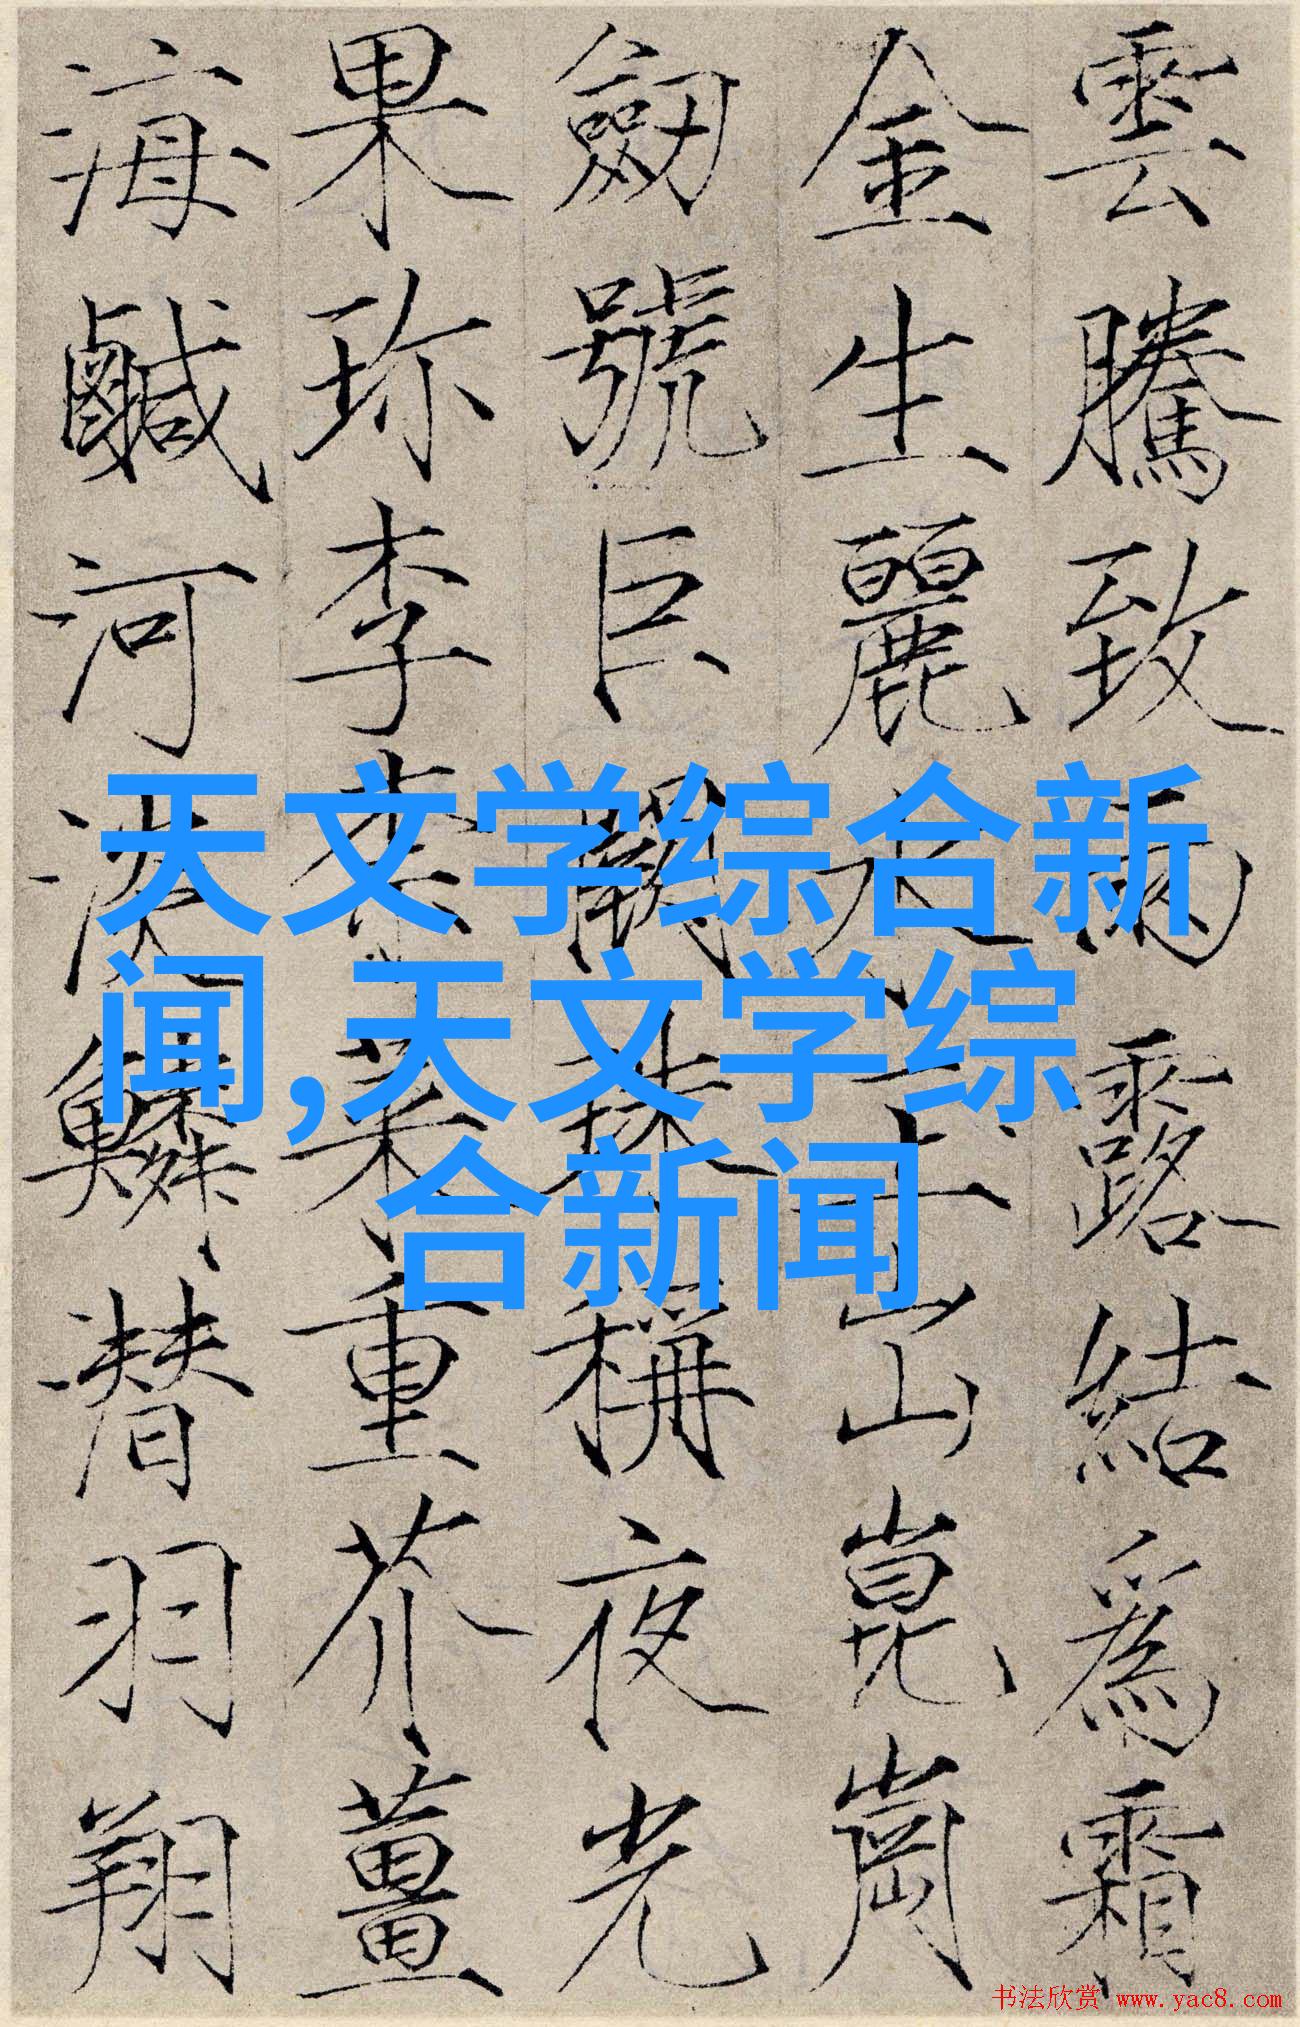 雲騰致雨露結為霜
金生麗水玉出崑崗
劒號巨闕珠稱夜光
果珎李柰菜重芥薑
海鹹河淡鱗潜羽翔
天文学综合新
闻,天文学综
合新闻
书法欣赏 www.yac8.com